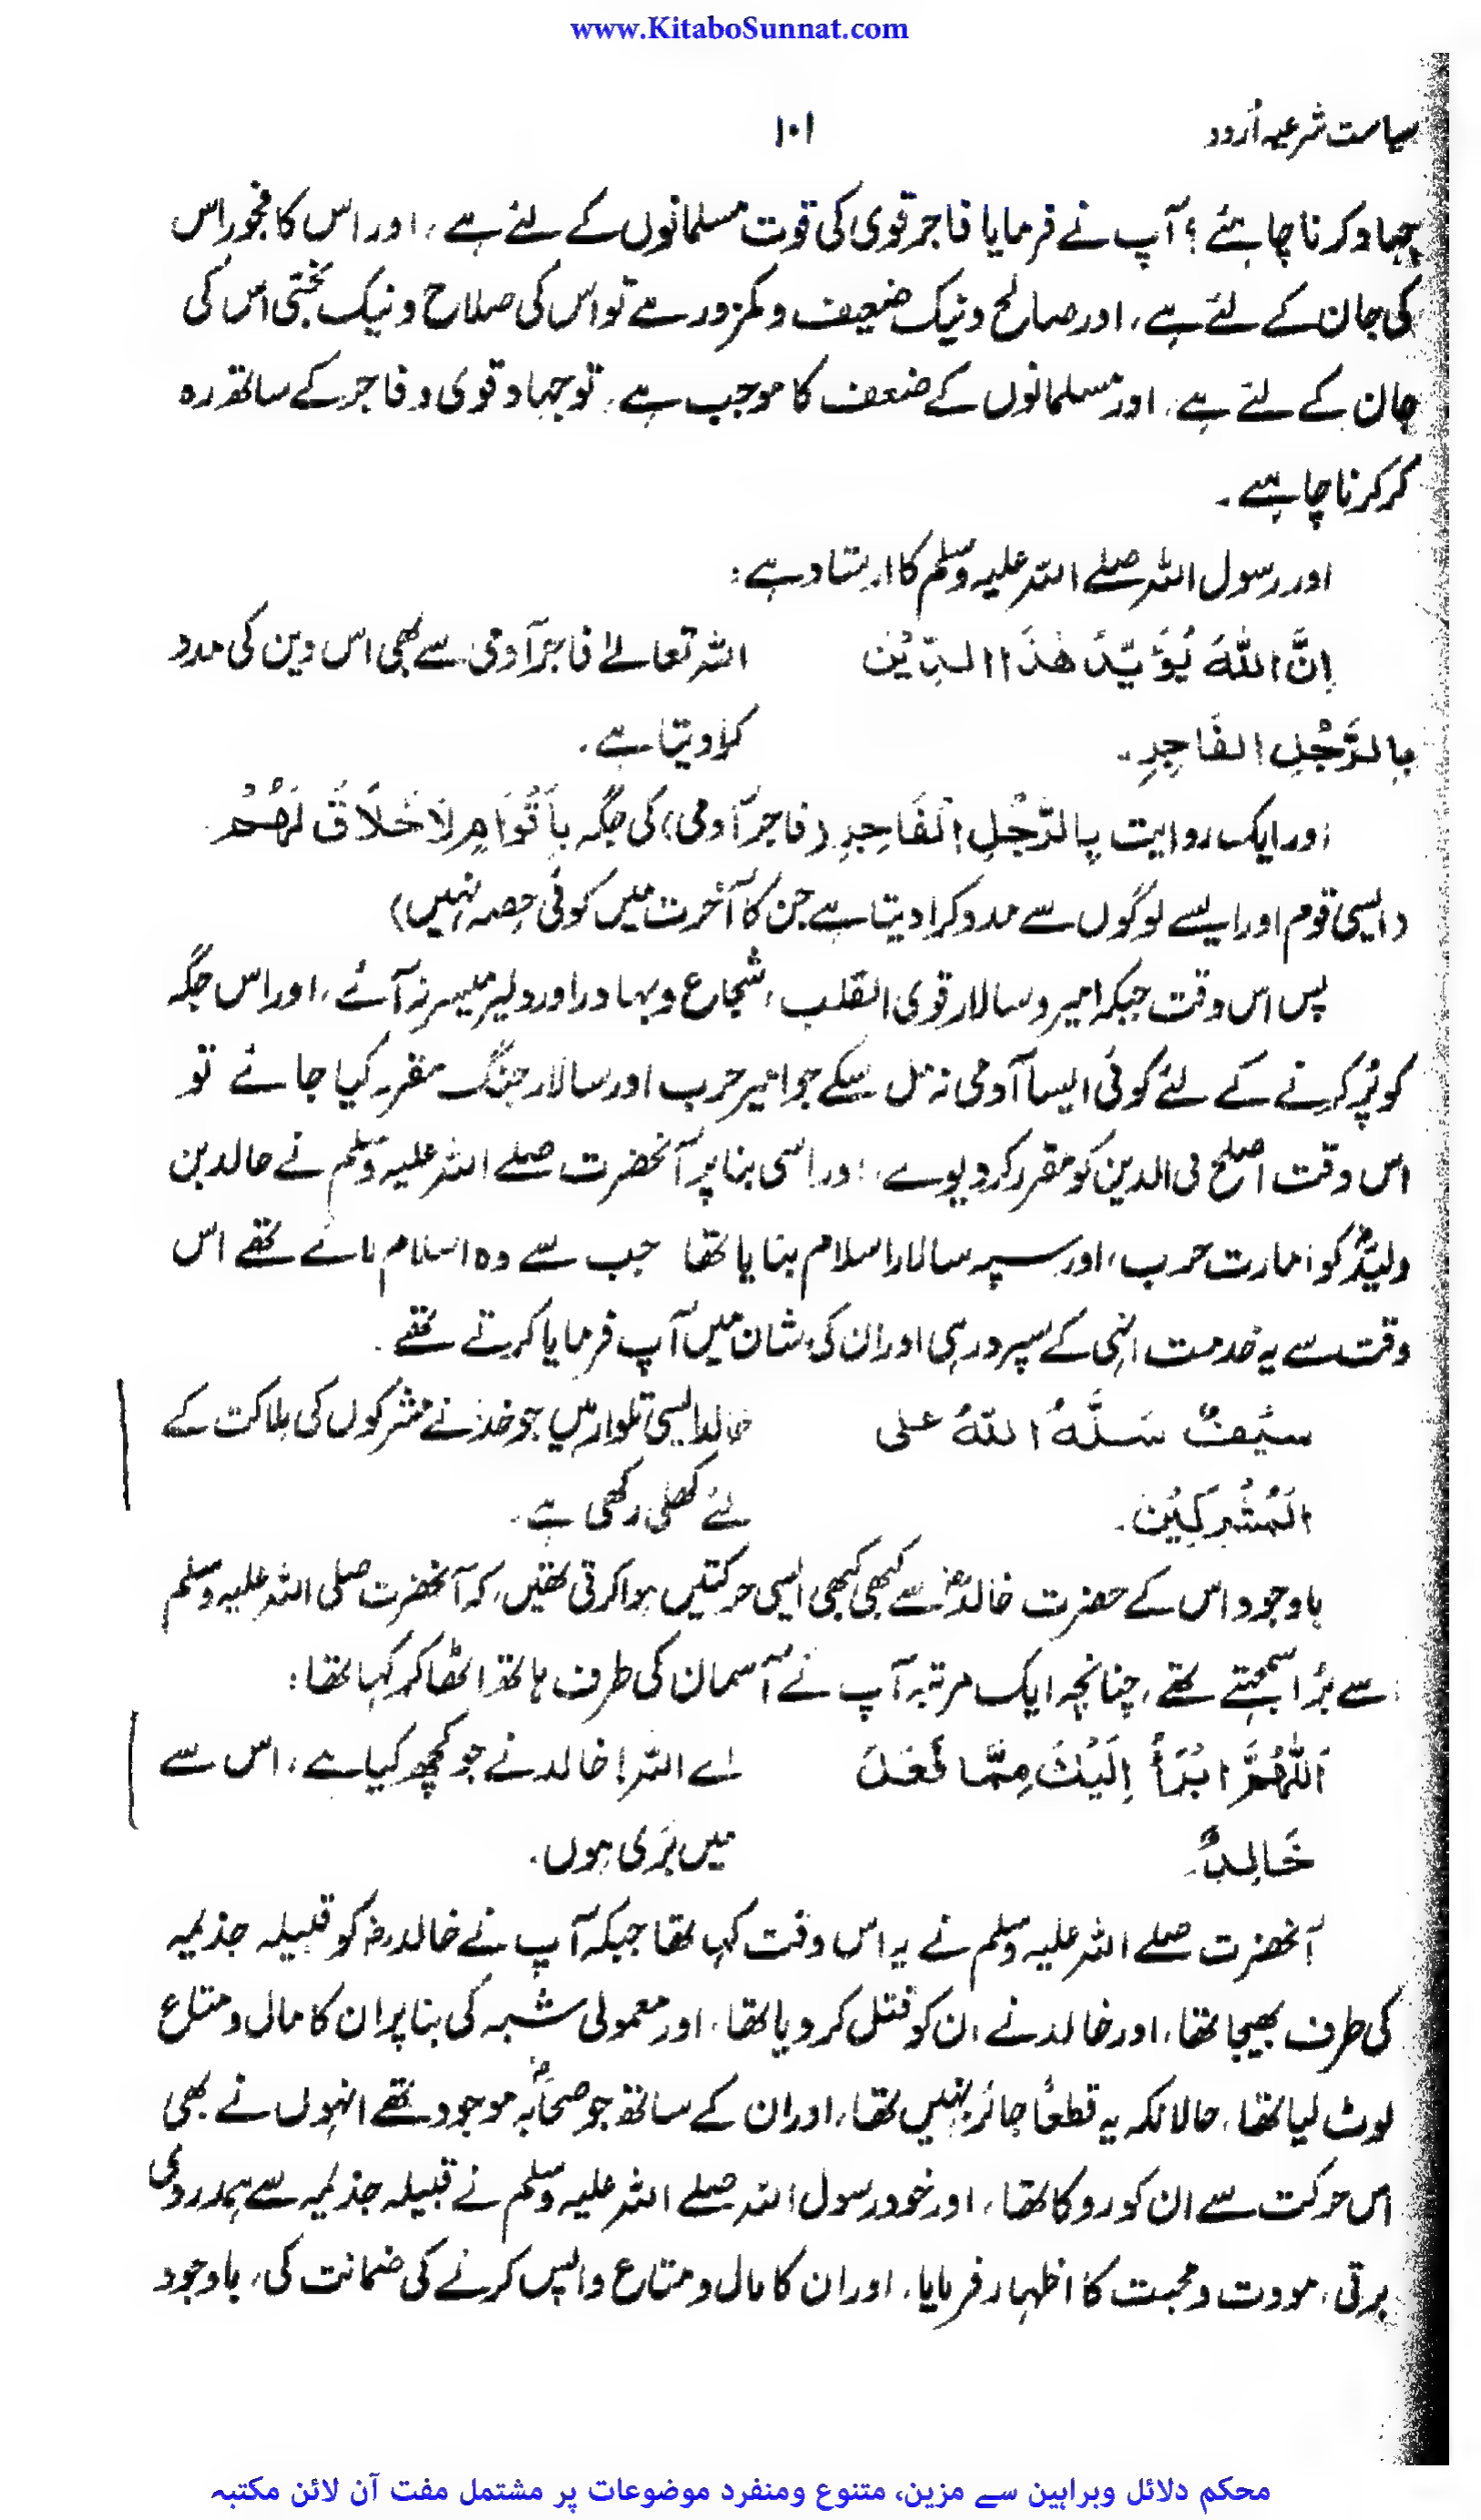 www.KitaboSunnat.com
سیاست شرعیہ اُردو
۱۰۱
جہاد کرنا چاہئے؟ آپ نے فرمایا فاجر قوی کی قوت مسلمانوں کے لئے ہے، اور اس کا فجور اس
کی جان کے لئے ہے، اور صالح و نیک ضعیف و کمزور ہے تو اس کی صلاح و نیک بختی اس کی
جان کے لئے ہے، اور مسلمانوں کے ضعف کا موجب ہے، تو جہاد قوی و فاجر کے ساتھ رہ
کر کرنا چاہیے۔
اور رسول اللہ صلے اللہ علیہ وسلم کا ارشاد ہے:
اِنَّ اللّٰهَ يُؤَيِّدُ هٰذَا الدِّيْنَ اللہ تعالےٰ فاجر آدمی سے بھی اس دین کی مدد
بِالرَّجُلِ الفَاجِرِ۔ کرا دیتا ہے۔
اور ایک روایت بِالرَّجُلِ الْفَاجِرِ (فاجر آدمی) کی جگہ بِاَقْوَامٍ لَاخَلَاقَ لَهُمْ
(ایسی قوم اور ایسے لوگوں سے مدد کرا دیتا ہے جن کا آخرت میں کوئی حصہ نہیں)
پس اس وقت جبکہ امیر و سالار قوی القلب، شجاع و بہادر اور دلیر میسر نہ آئے، اور اس جگہ
کو پُر کرنے کے لئے کوئی ایسا آدمی نہ مل سکے جو امیر حرب اور سالار جنگ مقرر کیا جائے تو
اس وقت اصلح فی الدین کو مقرر کر دیوے، اور اسی بنا پر آنحضرت صلے اللہ علیہ وسلم نے خالد بن
ولیدؓ کو امارت حرب، اور سپہ سالار اسلام بنایا تھا جب سے وہ اسلام لائے تھے اس
وقت سے یہ خدمت انہی کے سپرد رہی اور ان کی شان میں آپ فرمایا کرتے تھے۔
سَيْفٌ سَلَّهُ اللّٰهُ عَلی خالد ایسی تلوار ہیں جو خدا نے مشرکوں کی ہلاکت کے
الْمُشْرِكِيْنَ۔ لئے کھلی رکھی ہے۔
باوجود اس کے حضرت خالدؓ سے کبھی کبھی ایسی حرکتیں ہوا کرتی تھیں، کہ آنحضرت صلی اللہ علیہ وسلم
اسے بُرا سمجھتے تھے، چنانچہ ایک مرتبہ آپ نے آسمان کی طرف ہاتھ اٹھا کر کہا تھا:
اَللّٰهُمَّ اَبْرَأُ اِلَيْكَ مِمَّا فَعَلَ اے اللہ! خالد نے جو کچھ کیا ہے، اس سے
خَالِدٌ۔ میں بَری ہوں۔
آنحضرت صلے اللہ علیہ وسلم نے یہ اس وقت کہا تھا جبکہ آپ نے خالدرؓ کو قبیلہ جذیمہ
کی طرف بھیجا تھا، اور خالد نے ان کو قتل کر دیا تھا، اور معمولی شبہ کی بنا پر ان کا مال و متاع
لوٹ لیا تھا، حالانکہ یہ قطعاً جائز نہیں تھا، اور ان کے ساتھ جو صحابہؓ موجود تھے انہوں نے بھی
اس حرکت سے ان کو روکا تھا، اور خود رسول اللہ صلے اللہ علیہ وسلم نے قبیلہ جذیمہ سے ہمدردی
برتی، مودت و محبت کا اظہار فرمایا، اور ان کا مال و متاع واپس کرنے کی ضمانت کی، باوجود
محکم دلائل وبراہین سے مزین، متنوع ومنفرد موضوعات پر مشتمل مفت آن لائن مکتبہ